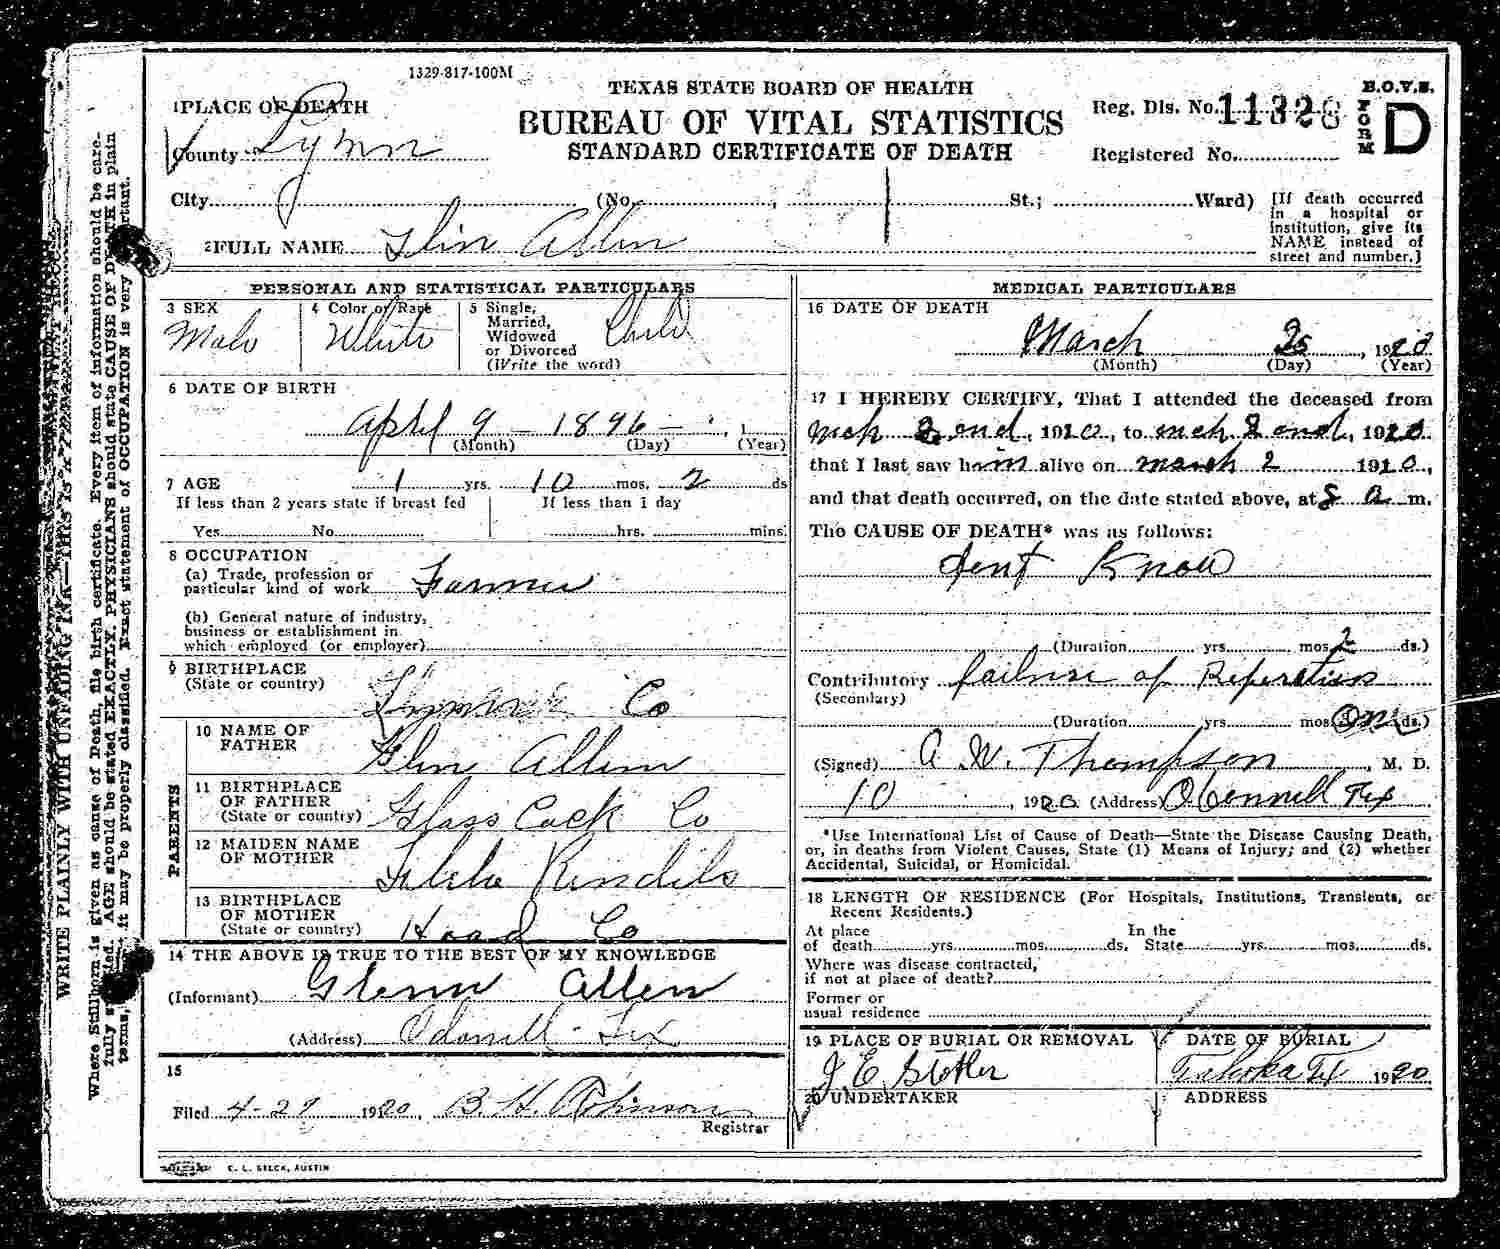 1329-817-100M
TEXAS STATE BOARD OF HEALTH
BUREAU OF VITAL STATISTICS
STANDARD CERTIFICATE OF DEATH
B.O.V.S.
FORM D
Reg. Dis. No. 11328
Registered No.
1 PLACE OF DEATH
County Lynn
City (No. , St.; Ward)
[If death occurred in a hospital or institution, give its NAME instead of street and number.]
2 FULL NAME Glin Allen
PERSONAL AND STATISTICAL PARTICULARS
3 SEX
Male
4 Color or Race
White
5 Single, Married, Widowed or Divorced (Write the word)
Child
6 DATE OF BIRTH
April 9 - 1896 - , 1
(Month) (Day) (Year)
7 AGE 1 yrs. 10 mos. 2 ds
If less than 2 years state if breast fed
Yes No
If less than 1 day
hrs. mins.
8 OCCUPATION
(a) Trade, profession or particular kind of work Farmer
(b) General nature of industry, business or establishment in which employed (or employer)
9 BIRTHPLACE
(State or country)
Co
PARENTS
10 NAME OF FATHER
Glin Allen
11 BIRTHPLACE OF FATHER
(State or country) Glass Cock Co
12 MAIDEN NAME OF MOTHER
13 BIRTHPLACE OF MOTHER
(State or country) Hood Co
14 THE ABOVE IS TRUE TO THE BEST OF MY KNOWLEDGE
(Informant) Glenn Allen
(Address) Odonell - Tex
15
Filed 4-27 1920, B. H. Robinson
Registrar
C. L. GELCK, AUSTIN
MEDICAL PARTICULARS
16 DATE OF DEATH
March , 1920
(Month) (Day) (Year)
17 I HEREBY CERTIFY, That I attended the deceased from
mch 2 end, 1920, to mch 2 end, 1920
that I last saw him alive on march 2 1920,
and that death occurred, on the date stated above, at 8 a m.
The CAUSE OF DEATH* was as follows:
dont Know
(Duration yrs. mos 2 ds.)
Contributory failure of
(Secondary)
(Duration yrs. mos One ds.)
(Signed) A. W. Thompson, M. D.
10 , 1920 (Address) OConnell Tex
*Use International List of Cause of Death—State the Disease Causing Death, or, in deaths from Violent Causes, State (1) Means of Injury; and (2) whether Accidental, Suicidal, or Homicidal.
18 LENGTH OF RESIDENCE (For Hospitals, Institutions, Transients, or Recent Residents.)
At place of death yrs. mos. ds.
In the State yrs. mos. ds.
Where was disease contracted, if not at place of death?
Former or usual residence
19 PLACE OF BURIAL OR REMOVAL
J. E. Stotler
DATE OF BURIAL
Tahoka Tx 1920
20 UNDERTAKER
ADDRESS
WRITE PLAINLY WITH UNFADING INK—THIS IS A
Where Stillborn is given as cause of Death, file birth certificate. Every item of information should be carefully supplied. AGE should be stated EXACTLY. PHYSICIANS should state CAUSE OF DEATH in plain terms, it may be properly classified. Exact statement of OCCUPATION is very important.